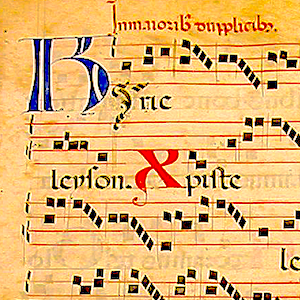 In maiorib⁊ dupplicib⁊.
Kyrie
leyson. Xpiste
le